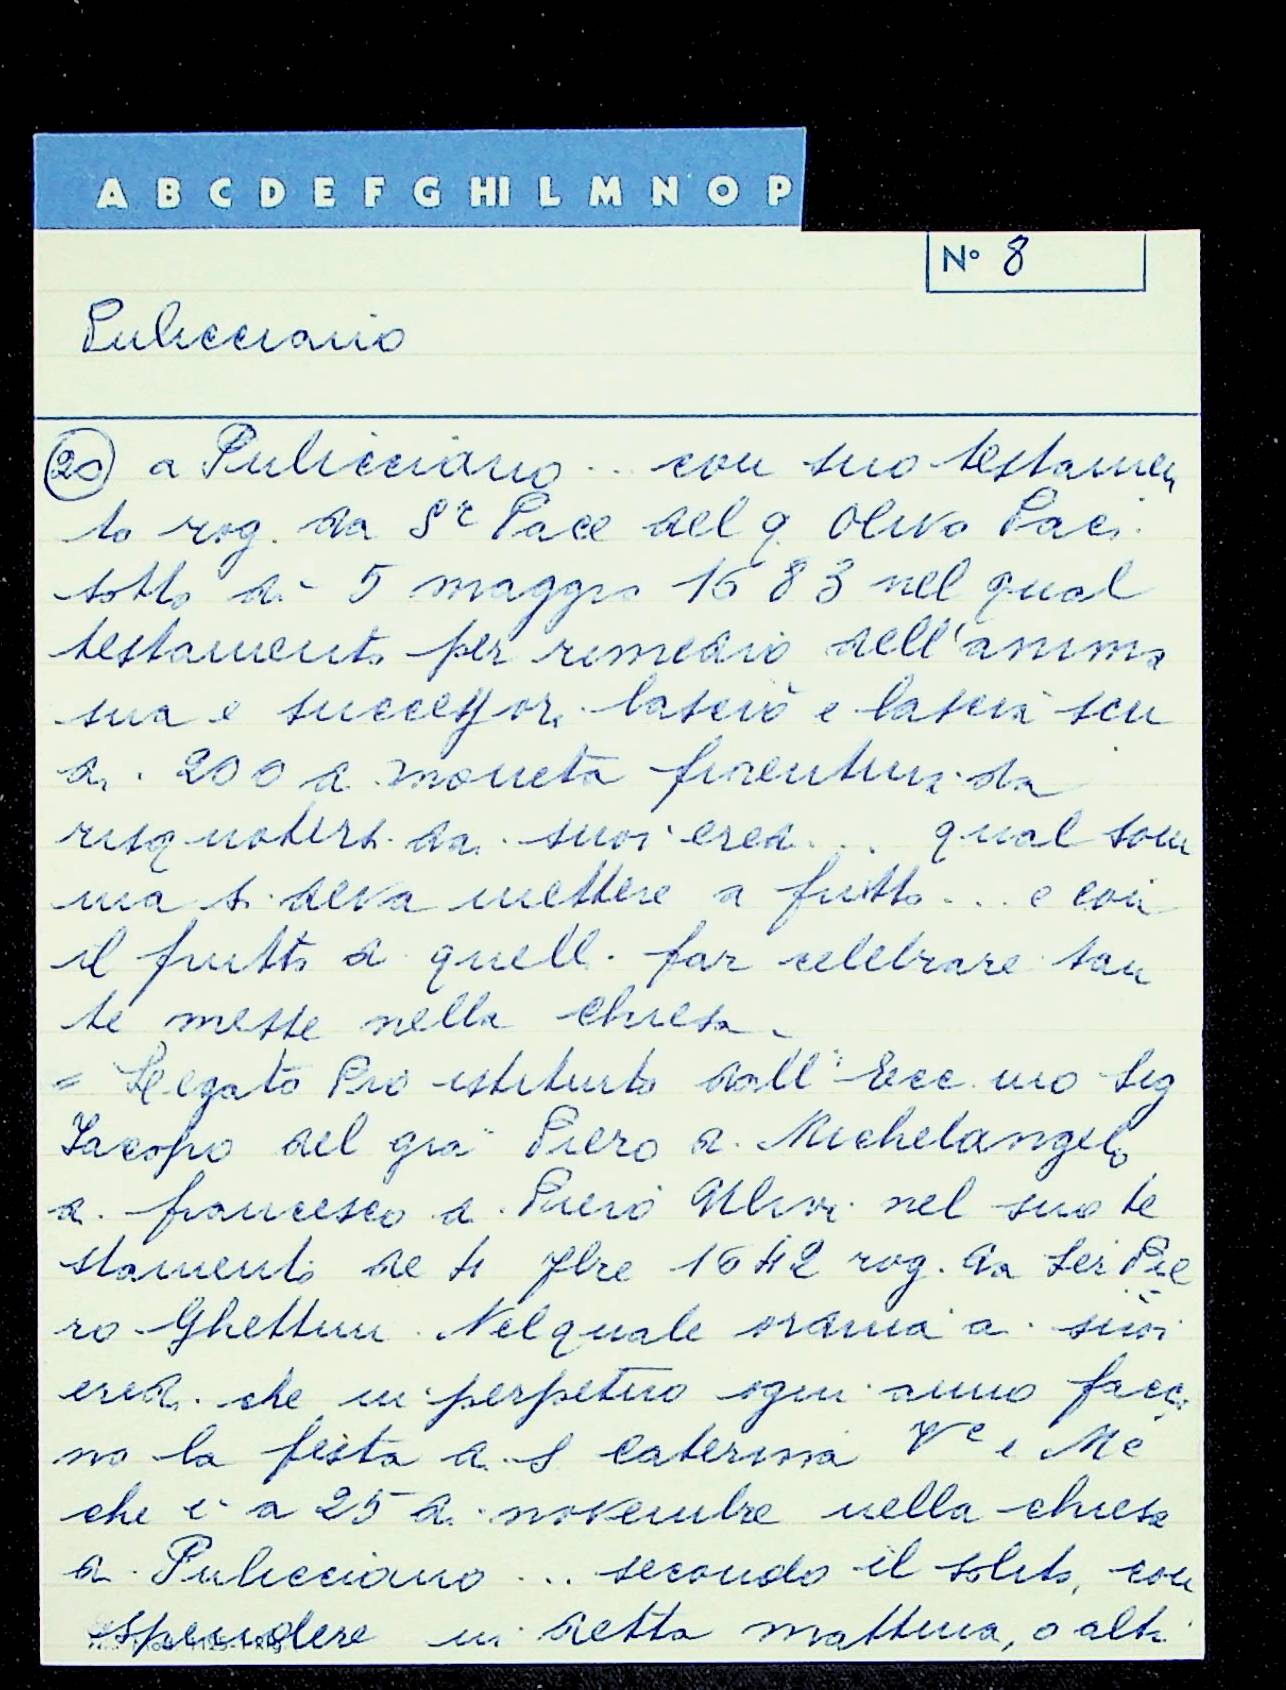 A B C D E F G HI L M N O P
N° 8
Pulicciano
20 a Pulicciano .. con suo testamen
to rog. da Sr Pace del q. Olivo Paci
sotto dì 5 maggio 1683 nel qual
testamento per rimedio dell'anima
sua e successori lasciò e lascia scu
di 200 di moneta fiorentina da
risquotersi dai suoi eredi ... qual som
ma si deva mettere a frutto ... e con
il frutto di quelli far celebrare tan
te messe nella chiesa.
= Legato Pio istituito dall' Ecc.mo Sig
Iacopo del già Piero di Michelangelo
di Francesco di Piero Ulivi nel suo te
stamento de 4 7bre 1642 rog. da Ser Pie
ro Ghettini. Nel quale ordina a suoi
eredi che in perpetuo ogni anno facci
no la festa di S Caterina Ve e Me
che è a 25 di novembre nella chiesa
di Pulicciano ... secondo il solito, con
ispendere in detta mattina, o altr